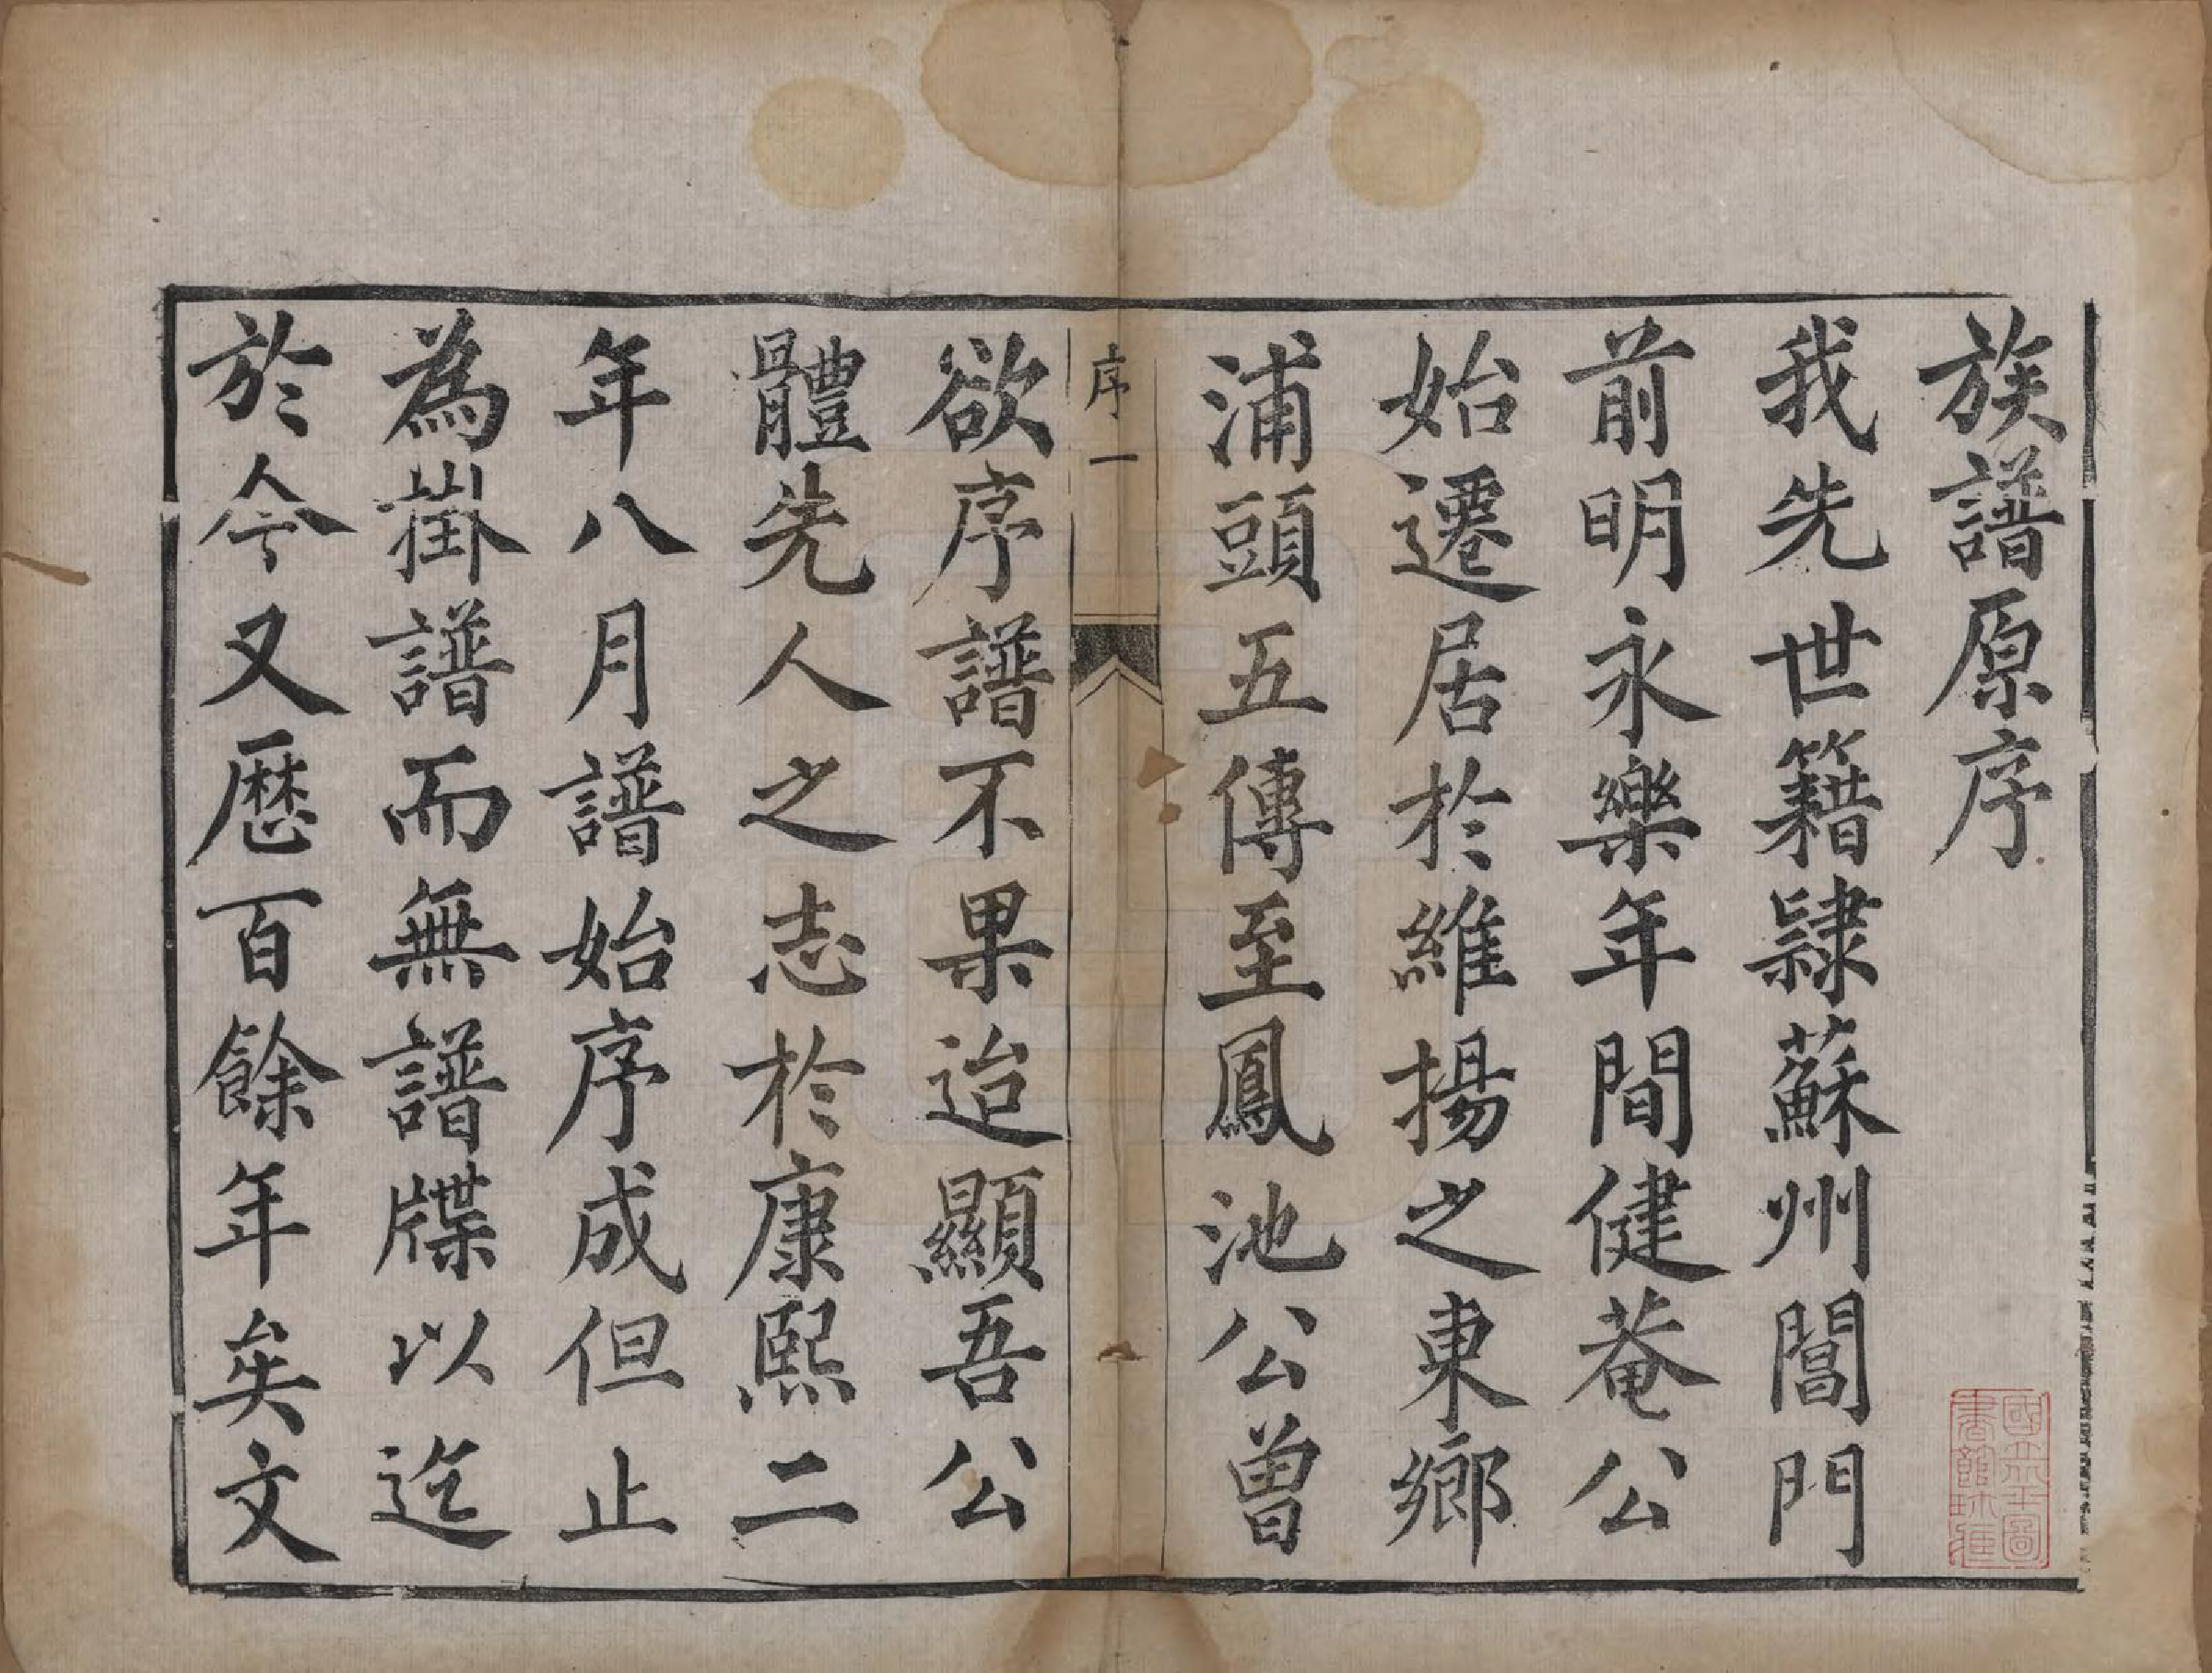 族譜原序
我先世籍隷蘇州閶門
前明永樂年間健菴公
始遷居於維揚之東鄉
浦頭五傳至鳳池公曽
序一
欲序譜不果迨顯吾公
體先人之志於康熙二
年八月譜始序成但止
為掛譜而無譜牒以迄
於今又歴百餘年矣文
國立北平圖
書館珎藏